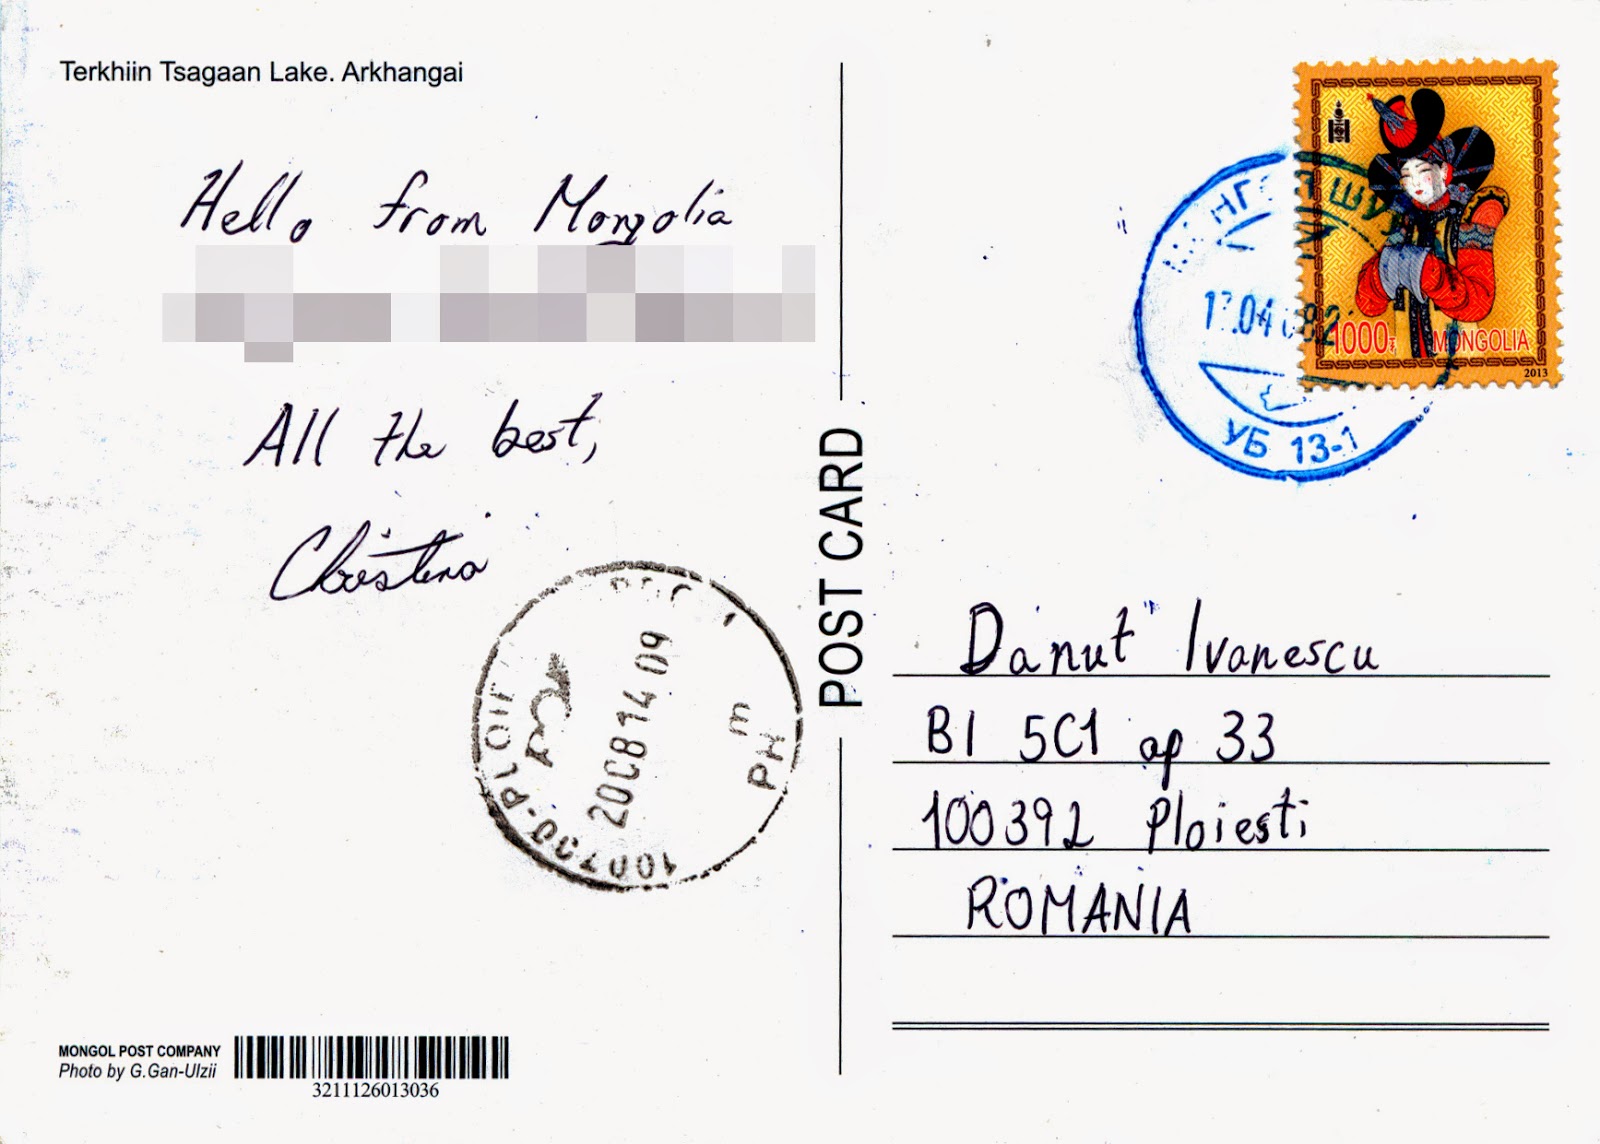 Terkhiin Tsagaan Lake. Arkhangai
Hello from Mongolia
All the best,
Christina
POST CARD
1000₮ MONGOLIA
2013
УБ 13-1
2008 14 09
PH
Danut Ivanescu
Bl 5C1 ap 33
100392 Ploiesti
ROMANIA
MONGOL POST COMPANY
Photo by G.Gan-Ulzii
3211126013036